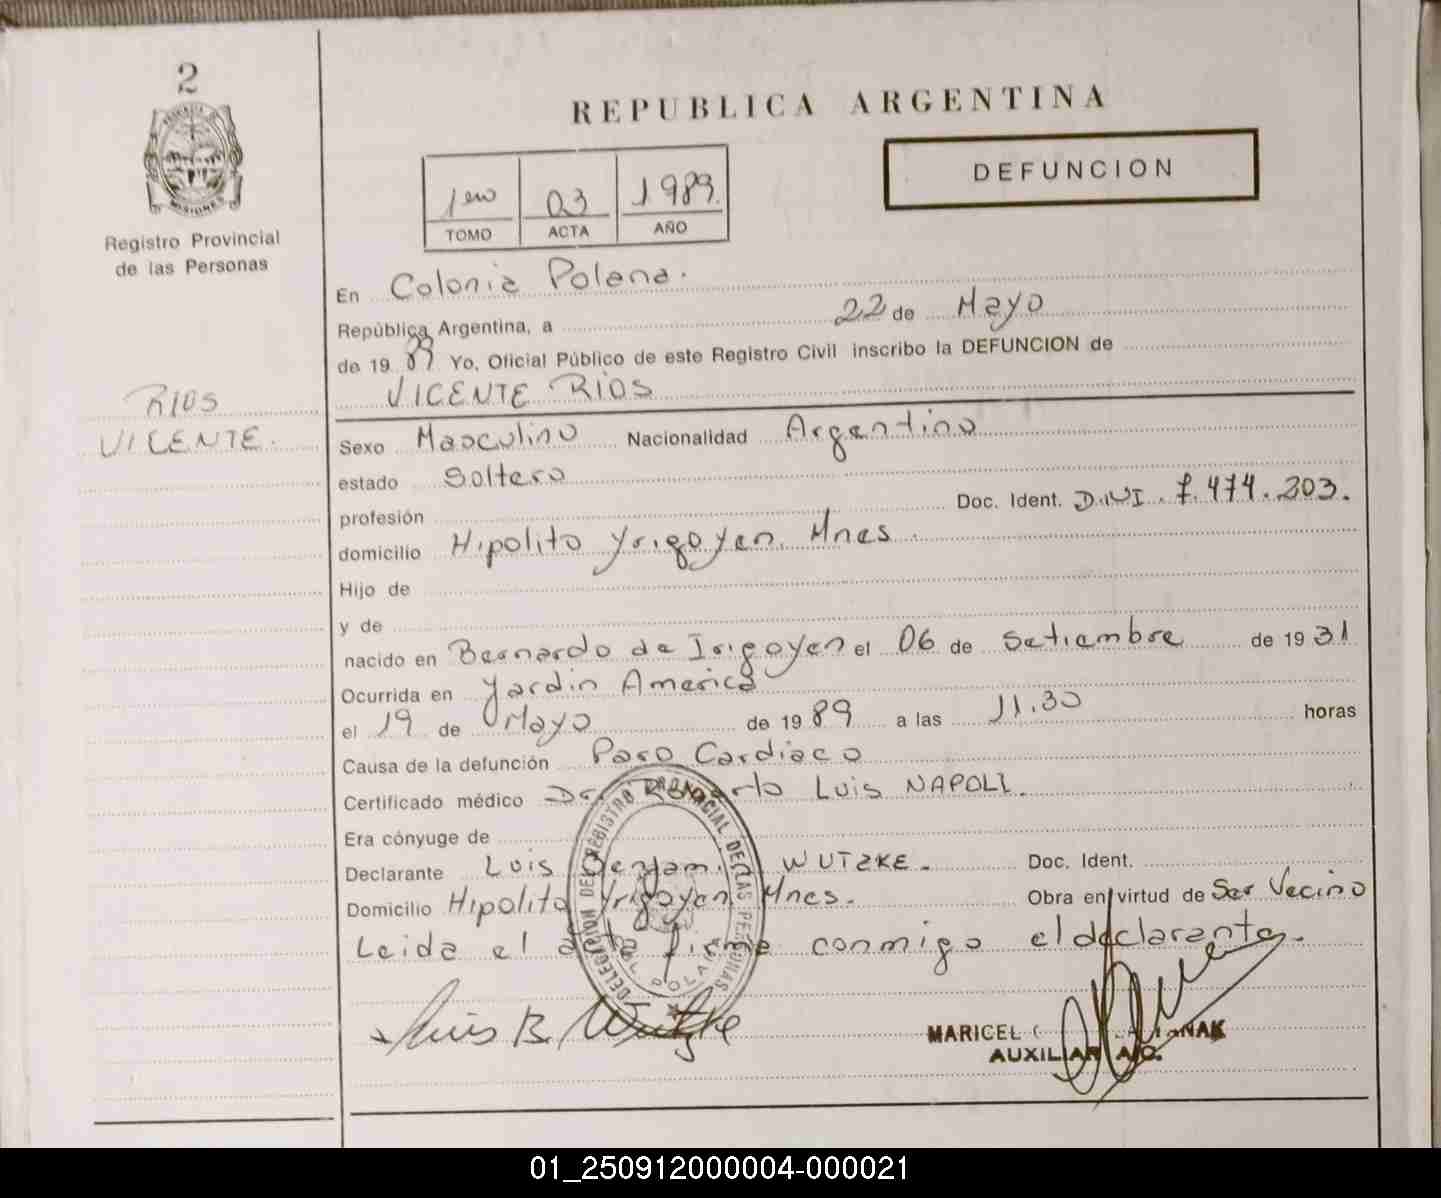 2
REPUBLICA ARGENTINA
DEFUNCION
1ero 03 1989.
TOMO ACTA AÑO
MISIONES
Registro Provincial
de las Personas
En Colonia Polana.
República Argentina, a 22 de Mayo
de 19 89 Yo, Oficial Público de este Registro Civil inscribo la DEFUNCION de
VICENTE RIOS
RIOS
VICENTE.
Sexo Masculino Nacionalidad Argentino
estado Soltero
profesión Doc. Ident. D.N.I. 7.474.203.
domicilio Hipolito Yrigoyen. Mnes.
Hijo de
y de
nacido en Bernardo de Irigoyen el 06 de Setiembre de 19 31
Ocurrida en Jardin America
el 19 de Mayo de 19 89 a las 11.30 horas
Causa de la defunción Paro Cardiaco
Certificado médico Dr. Luis NAPOLI.
Era cónyuge de
Declarante Luis Benjam. WUTZKE. Doc. Ident.
Domicilio Hipolito Yrigoyen Mnes. Obra en virtud de Ser Vecino
Leida el acta firma conmigo el declarante.
DELEGACION DEL REGISTRO PROVINCIAL DE LAS PERSONAS
COL POLANA
Luis B. Wutzke
MARICEL
AUXILIAR
01_250912000004-000021